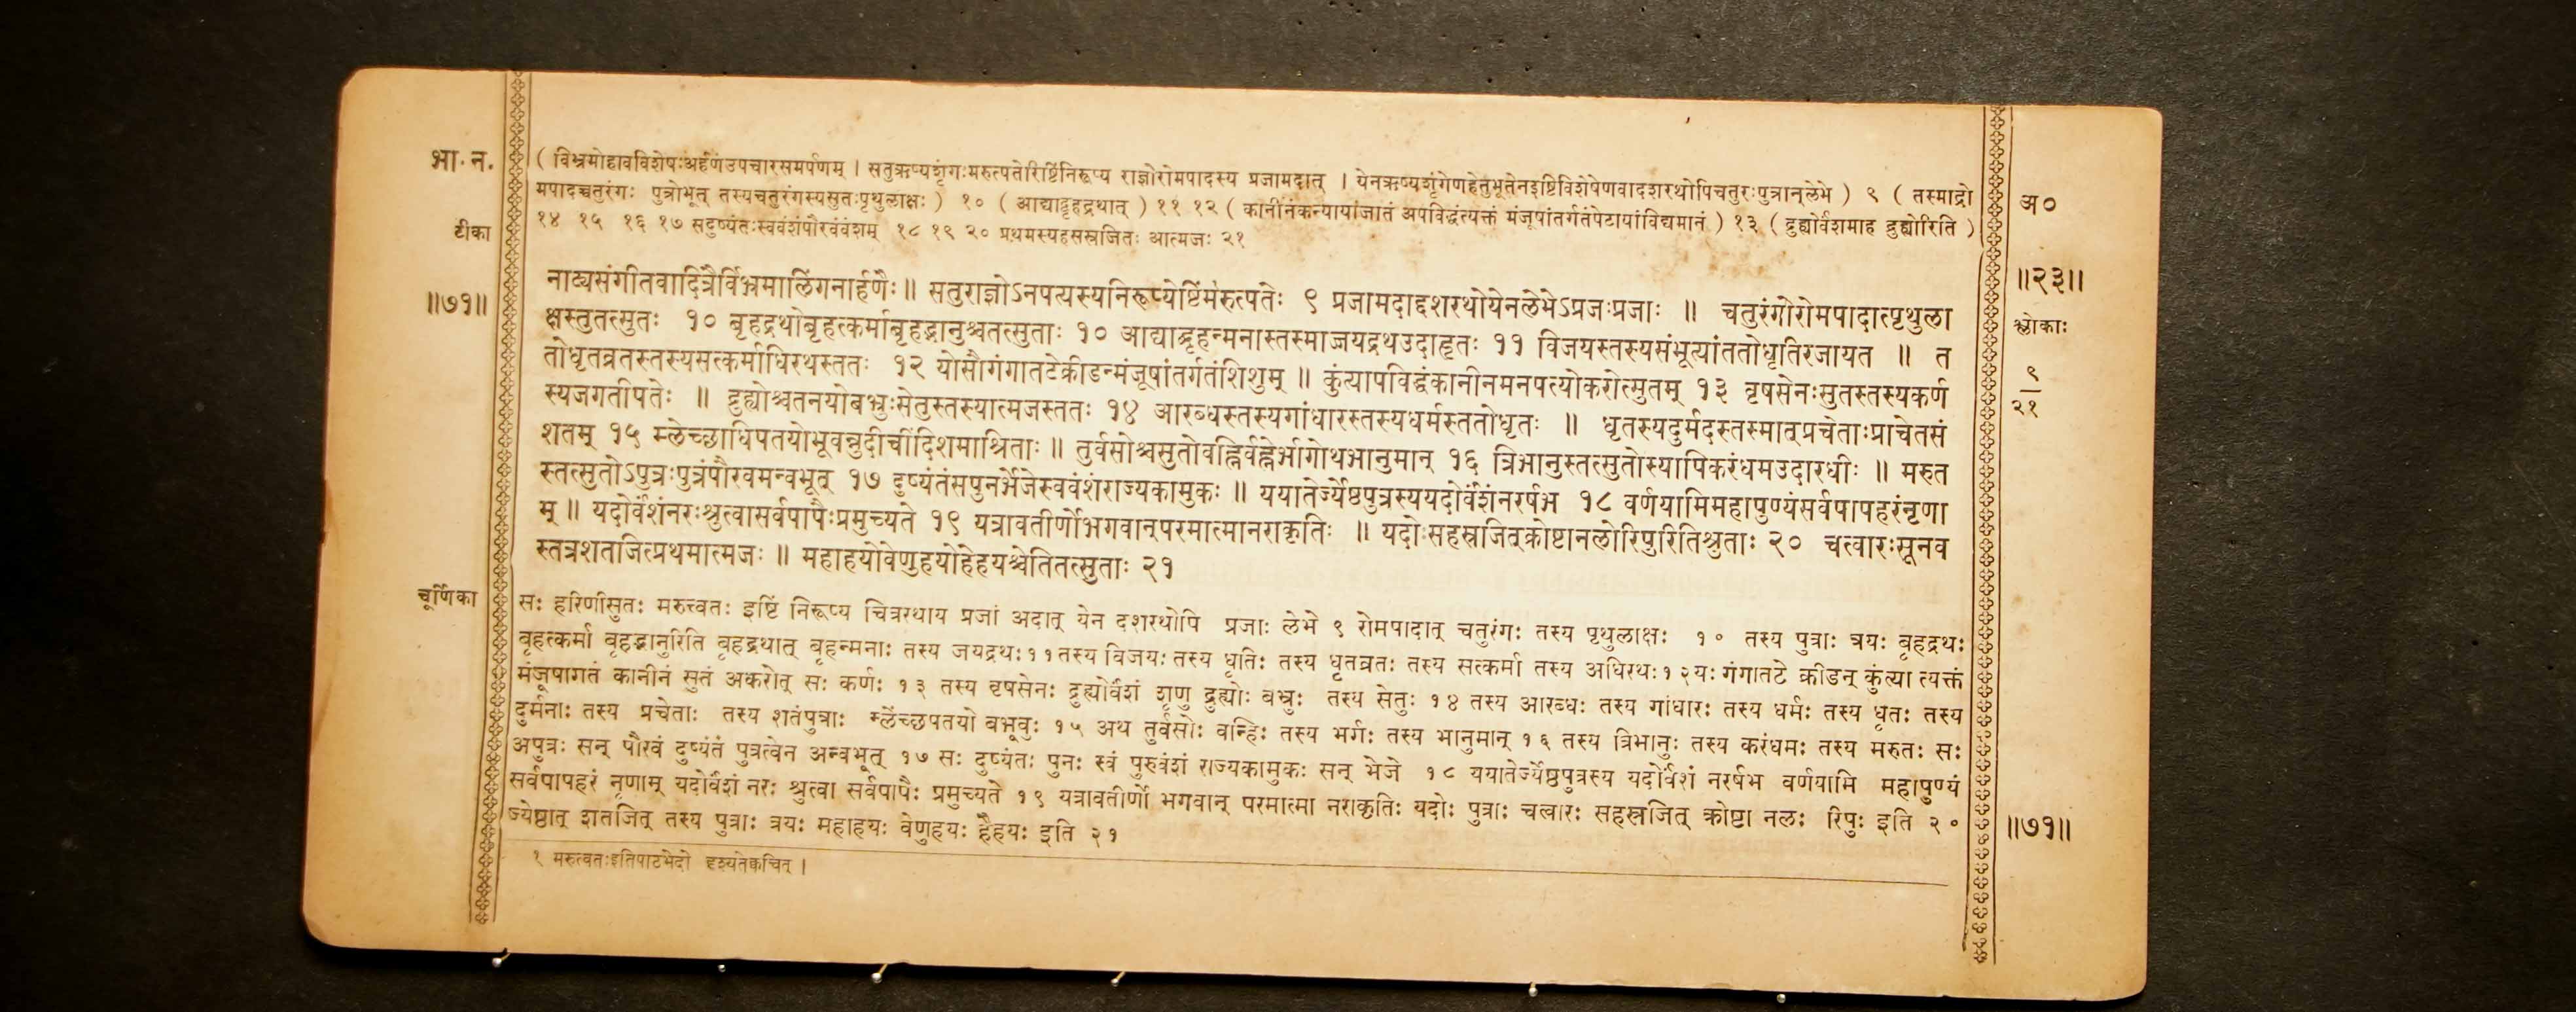 भा. न.
( विभ्रमोहावविशेषःअर्हणंउपचारसमर्पणम् । सतुऋष्यशृंगःमरुत्पतेरिष्टिंनिरूप्य राज्ञोरोमपादस्य प्रजामदात् । येनऋष्यशृंगेणहेतुभूतेनइष्टिविशेषेणवादशरथोपिचतुरःपुत्रान्लेभे ) ९ ( तस्माद्रो
मपादच्चतुरंगः पुत्रोभूत् तस्यचतुरंगस्यसुतःपृथुलाक्षः ) १० ( आद्याद्बृहद्रथात् ) ११ १२ ( कानीनंकन्यायांजातं अपविद्धंत्यक्तं मंजूषांतर्गतंपेटायांविद्यमानं ) १३ ( द्रुह्योर्वंशमाह द्रुह्योरिति )
अ०
टीका
१४ १५ १६ १७ सदुष्यंतःस्ववंशंपौरवंवंशम् १८ १९ २० प्रथमस्यहसस्रजितः आत्मजः २१
॥२३॥
॥७१॥
नाट्यसंगीतवादित्रैर्विभ्रमालिंगनार्हणैः ॥ सतुराज्ञोऽनपत्यस्यनिरूप्येष्टिंमरुत्पतेः ९ प्रजामदाद्दशरथोयेनलेभेऽप्रजःप्रजाः ॥ चतुरंगोरोमपादात्पृथुला
श्लोकाः
क्षस्तुतत्सुतः १० बृहद्रथोबृहत्कर्माबृहद्भानुश्चतत्सुताः १० आद्याद्बृहन्मनास्तस्माज्जयद्रथउदाहृतः ११ विजयस्तस्यसंभूत्यांततोधृतिरजायत ॥ त
९
२१
तोधृतव्रतस्तस्यसत्कर्माधिरथस्ततः १२ योसौगंगातटेक्रीडन्मंजूषांतर्गतंशिशुम् ॥ कुंत्यापविद्धंकानीनमनपत्योकरोत्सुतम् १३ वृषसेनःसुतस्तस्यकर्ण
स्यजगतीपतेः ॥ द्रुह्योश्चतनयोबभ्रुःसेतुस्तस्यात्मजस्ततः १४ आरब्धस्तस्यगांधारस्तस्यधर्मस्ततोधृतः ॥ धृतस्यदुर्मदस्तस्मात्प्रचेताःप्राचेतसं
शतम् १५ म्लेच्छाधिपतयोभूवन्नुदीचींदिशमाश्रिताः ॥ तुर्वसोश्चसुतोवह्निर्वह्नेर्भागोथभानुमान् १६ त्रिभानुस्तत्सुतोस्यापिकरंधमउदारधीः ॥ मरुत
स्तत्सुतोऽपुत्रःपुत्रंपौरवमन्वभूत् १७ दुष्यंतंसपुनर्भेजेस्ववंशंराज्यकामुकः ॥ ययातेर्ज्येष्ठपुत्रस्ययदोर्वंशंनरर्षभ १८ वर्णयामिमहापुण्यंसर्वपापहरंनृणा
म् ॥ यदोर्वंशंनरःश्रुत्वासर्वपापैःप्रमुच्यते १९ यत्रावतीर्णोभगवान्परमात्मानराकृतिः ॥ यदोःसहस्रजित्क्रोष्टानलोरिपुरितिश्रुताः २० चत्वारःसूनव
स्तत्रशतजित्प्रथमात्मजः ॥ महाहयोवेणुहयोहेहयश्चेतितत्सुताः २१
चूर्णिका
सः हरिणीसुतः मरुत्त्वतः इष्टिं निरूप्य चित्ररथाय प्रजां अदात् येन दशरथोपि प्रजाः लेभे ९ रोमपादात् चतुरंगः तस्य पृथुलाक्षः १० तस्य पुत्राः त्रयः बृहद्रथः
बृहत्कर्मा बृहद्भानुरिति बृहद्रथात् बृहन्मनाः तस्य जयद्रथः११तस्य विजयः तस्य धृतिः तस्य धृतव्रतः तस्य सत्कर्मा तस्य अधिरथः१२यः गंगातटे क्रीडन् कुंत्या त्यक्तं
मंजूषागतं कानीनं सुतं अकरोत् सः कर्णः १३ तस्य वृषसेनः द्रुह्योर्वंशं शृणु द्रुह्योः बभ्रुः तस्य सेतुः १४ तस्य आरब्धः तस्य गांधारः तस्य धर्मः तस्य धृतः तस्य
दुर्मनाः तस्य प्रचेताः तस्य शतंपुत्राः म्लेंच्छपतयो बभूवुः १५ अथ तुर्वसोः वन्हिः तस्य भर्गः तस्य भानुमान् १६ तस्य त्रिभानुः तस्य करंधमः तस्य मरुतः सः
अपुत्रः सन् पौरवं दुष्यंतं पुत्रत्वेन अन्वभूत् १७ सः दुष्यंतः पुनः स्वं पुरुवंशं राज्यकामुकः सन् भेजे १८ ययातेर्ज्येष्ठपुत्रस्य यदोर्वंशं नरर्षभ वर्णयामि महापुण्यं
सर्वपापहरं नृणाम् यदोर्वंशं नरः श्रुत्वा सर्वपापैः प्रमुच्यते १९ यत्रावतीर्णो भगवान् परमात्मा नराकृतिः यदोः पुत्राः चत्वारः सहस्रजित् क्रोष्टा नलः रिपुः इति २०
ज्येष्ठात् शतजित् तस्य पुत्राः त्रयः महाहयः वेणुहयः हैहयः इति २१
॥७१॥
१ मरुत्वतःइतिपाठभेदो दृश्यतेक्वचित् ।